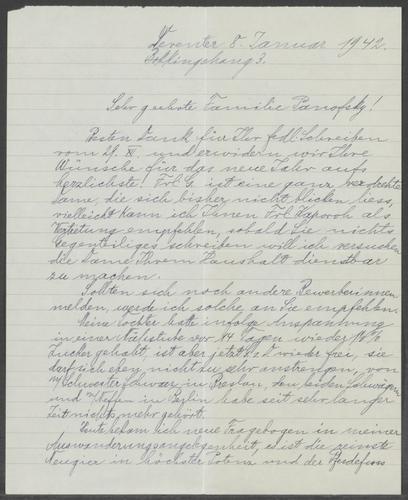 Deventer 8. Januar 1942.
3.
Sehr geehrte Familie Panofsky!
Besten Dank für Ihr frdl. Schreiben
vom 29. XII. und erwidern wir Ihre
Wünsche für das neue Jahr aufs
herzlichste! Frl. G. ist eine ganz
Dame, die sich bisher nicht blicken liess,
vielleicht kann ich Ihnen Frl. als
Vertretung empfehlen, sobald Sie nichts
Gegenteiliges schreiben will ich versuchen
die Dame Ihrem Haushalt dienstbar
zu machen.
Sollten sich noch andere Bewerberinnen
melden, werde ich solche an Sie empfehlen.
Meine Tochter hatte infolge Anspannung
in einer Nähstube vor 14 Tagen wieder
Zucker gehabt, ist aber jetzt wieder frei, sie
darf sich eben nicht zu sehr anstrengen, von
m/Schwester Schwarz in Breslau, den beiden Schwägern
und m/Neffen in Berlin habe seit sehr langer
Zeit nichts mehr gehört.
Heute bekam ich neue Fragebogen in meiner
Auswanderungsangelegenheit, es ist die reinste
Neugier in höchster Potenz und der